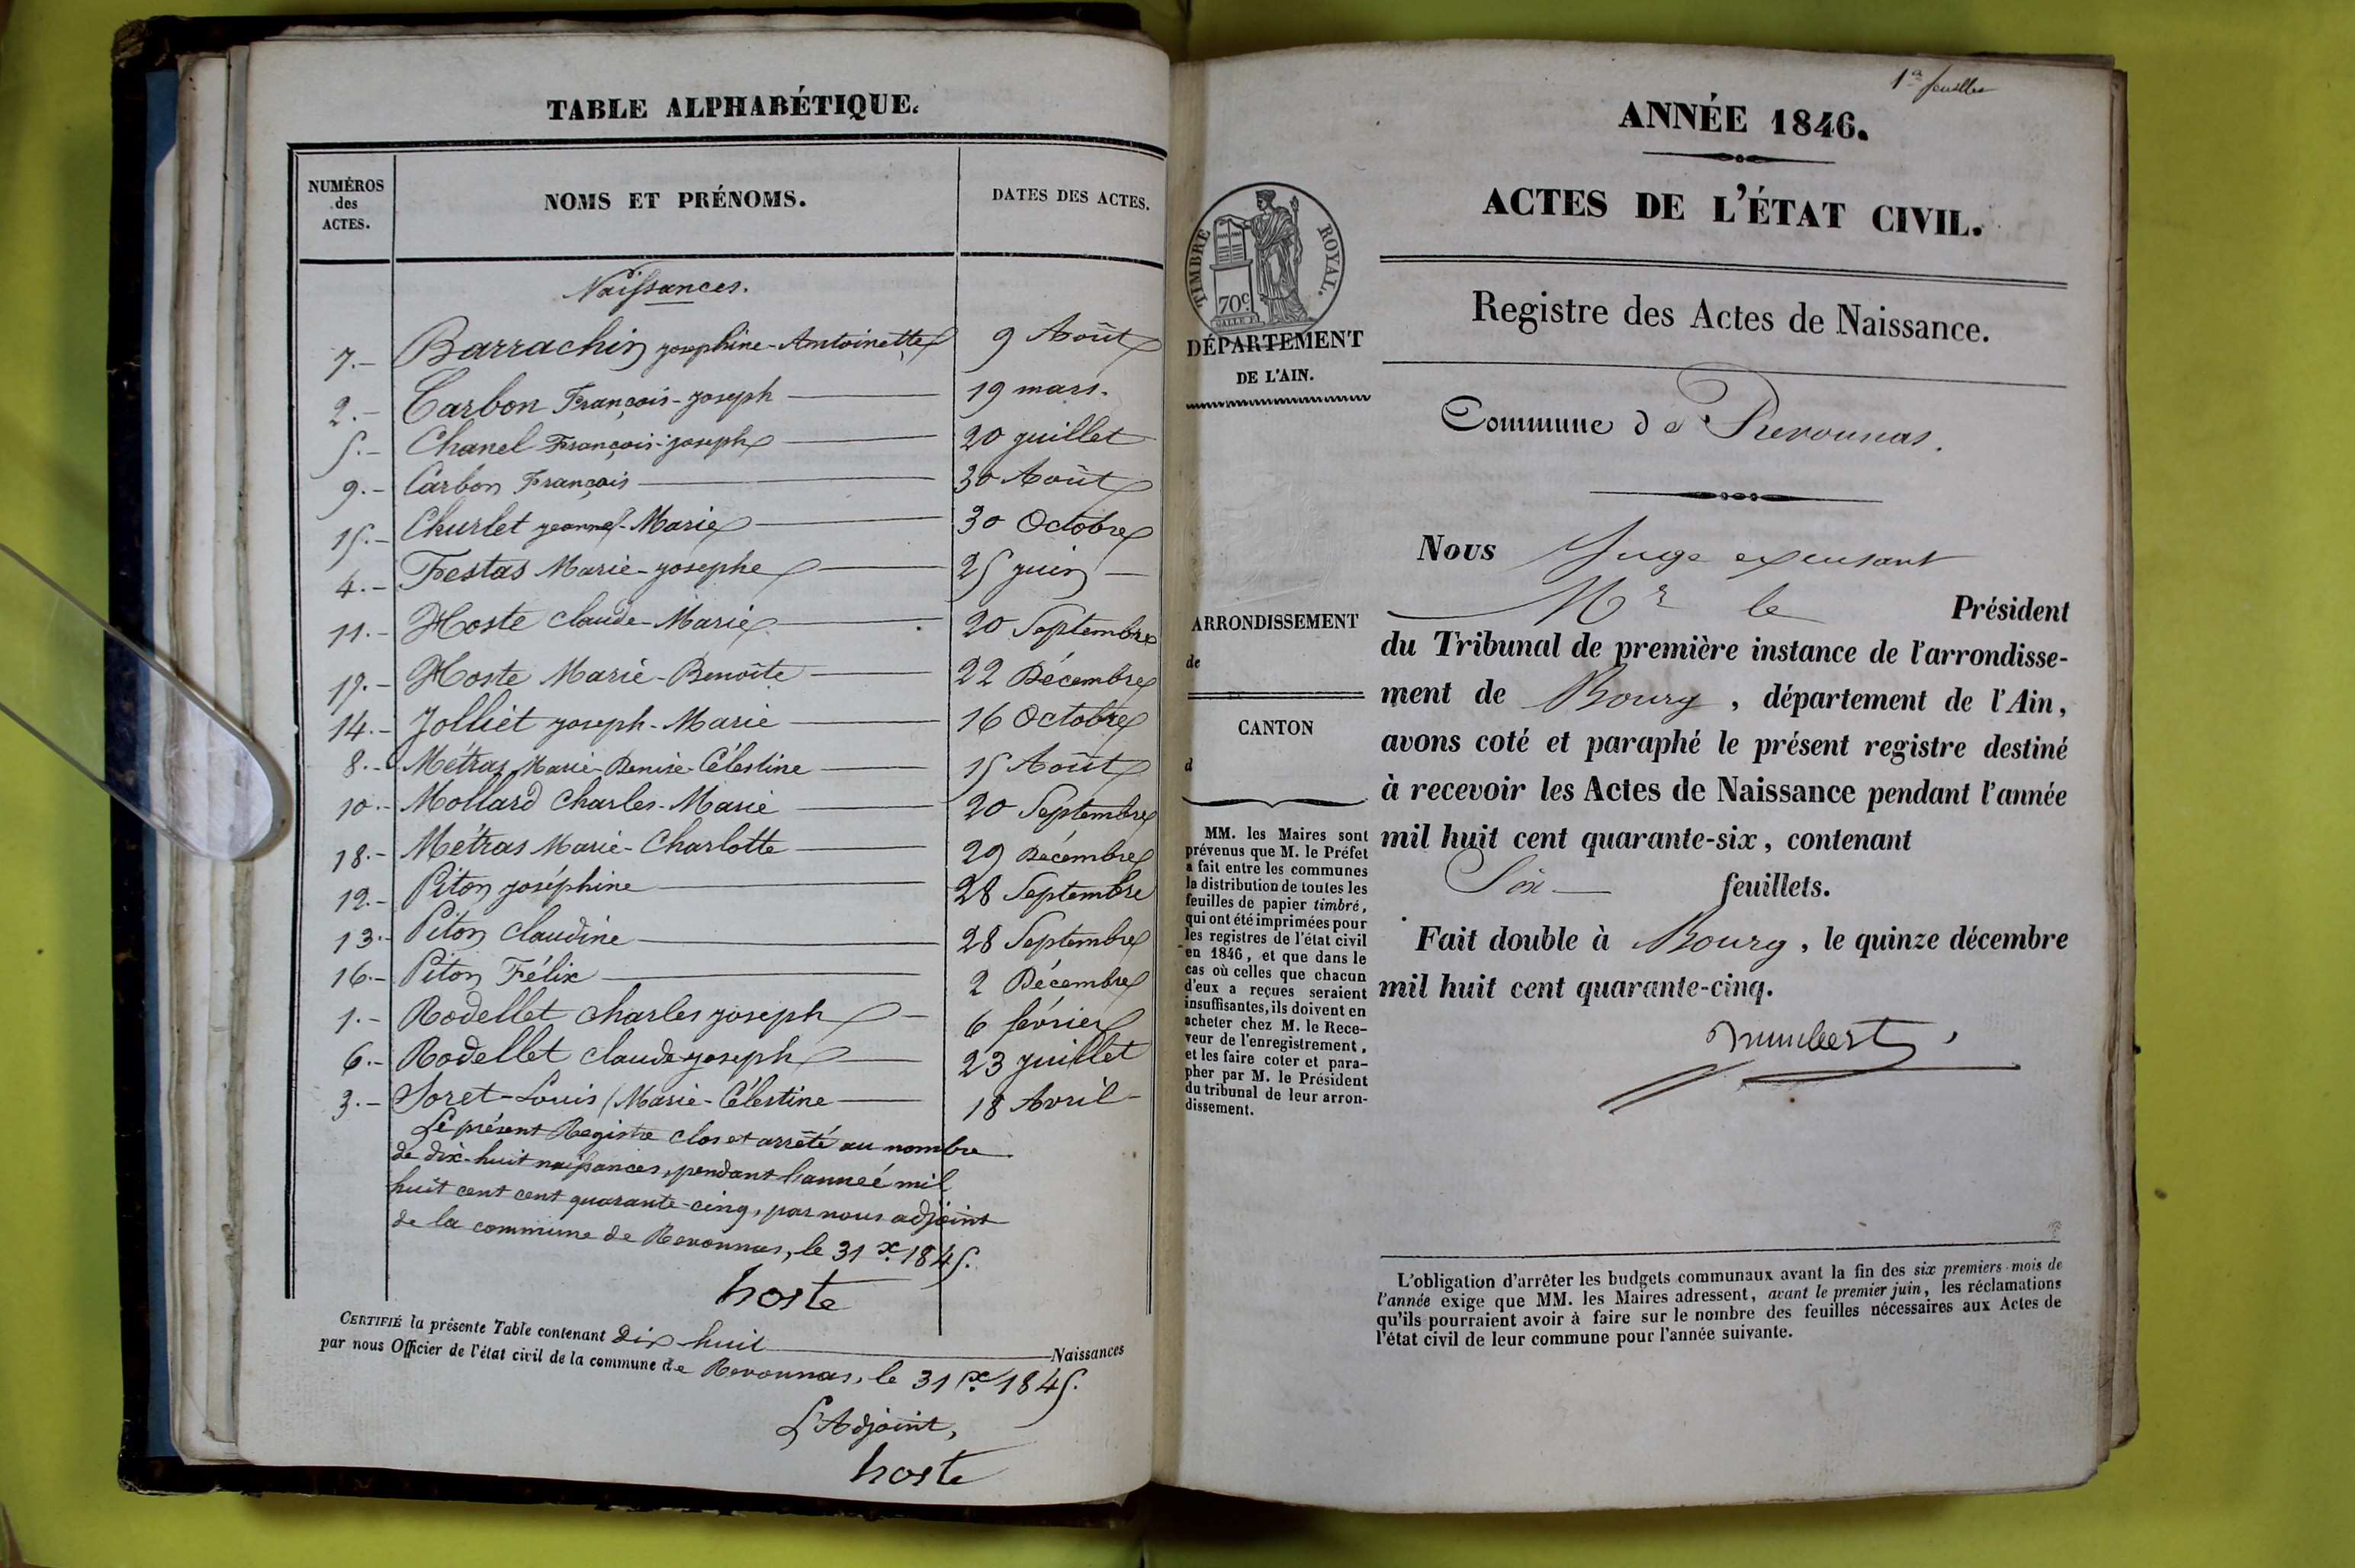 TABLE ALPHABÉTIQUE.
NUMÉROS des ACTES.
NOMS ET PRÉNOMS.
DATES DES ACTES.
Naissances.
7.- Barrachin Josephine-Antoinette 9 Août
2.- Carbon François-Joseph 19 mars.
5.- Chanel François-Joseph 20 Juillet
9.- Carbon François 30 Août
15.- Churlet Jeanne-Marie 30 Octobre
4.- Festas Marie-Josephe 25 Juin
11.- Hoste Claude-Marie 20 Septembre
17.- Hoste Marie-Benoîte 22 Décembre
14.- Jolliet Joseph-Marie 16 Octobre
8.- Métras Marie-Denise-Célestine 15 Août
10.- Mollard Charles-Marie 20 Septembre
18.- Métras Marie-Charlotte 29 Décembre
12.- Piton Joséphine 28 Septembre
13.- Piton Claudine 28 Septembre
16.- Piton Félix 2 Décembre
1.- Rodellet Charles Joseph 6 février
6.- Rodellet Claude Joseph 23 Juillet
3.- Soret-Louis / Marie-Célestine 18 Avril
Le présent Registre clos et arrêté au nombre
de dix-huit naissances, pendant l'année mil
huit cent cent quarante-cinq, par nous adjoint
de la commune de Revonnas, le 31 Xe. 1845.
hoste
CERTIFIÉ la présente Table contenant dix huit Naissances
par nous Officier de l'état civil de la commune de Revonnas, le 31 Xe. 1845.
L'Adjoint,
hoste
ANNÉE 1846.
ACTES DE L'ÉTAT CIVIL.
TIMBRE ROYAL.
70c.
DÉPARTEMENT
DE L'AIN.
Registre des Actes de Naissance.
Commune de Revonnas.
Nous Juge excusant
Mr le Président
du Tribunal de première instance de l'arrondisse-
ment de Bourg, département de l'Ain,
avons coté et paraphé le présent registre destiné
à recevoir les Actes de Naissance pendant l'année
mil huit cent quarante-six, contenant
Six feuillets.
Fait double à Bourg, le quinze décembre
mil huit cent quarante-cinq.
ARRONDISSEMENT
de
CANTON
d
MM. les Maires sont
prévenus que M. le Préfet
a fait entre les communes
la distribution de toutes les
feuilles de papier timbré,
qui ont été imprimées pour
les registres de l'état civil
en 1846, et que dans le
cas où celles que chacun
d'eux a reçues seraient
insuffisantes, ils doivent en
acheter chez M. le Rece-
veur de l'enregistrement,
et les faire coter et para-
pher par M. le Président
du tribunal de leur arron-
dissement.
L'obligation d'arrêter les budgets communaux avant la fin des six premiers mois de
l'année exige que MM. les Maires adressent, avant le premier juin, les réclamations
qu'ils pourraient avoir à faire sur le nombre des feuilles nécessaires aux Actes de
l'état civil de leur commune pour l'année suivante.